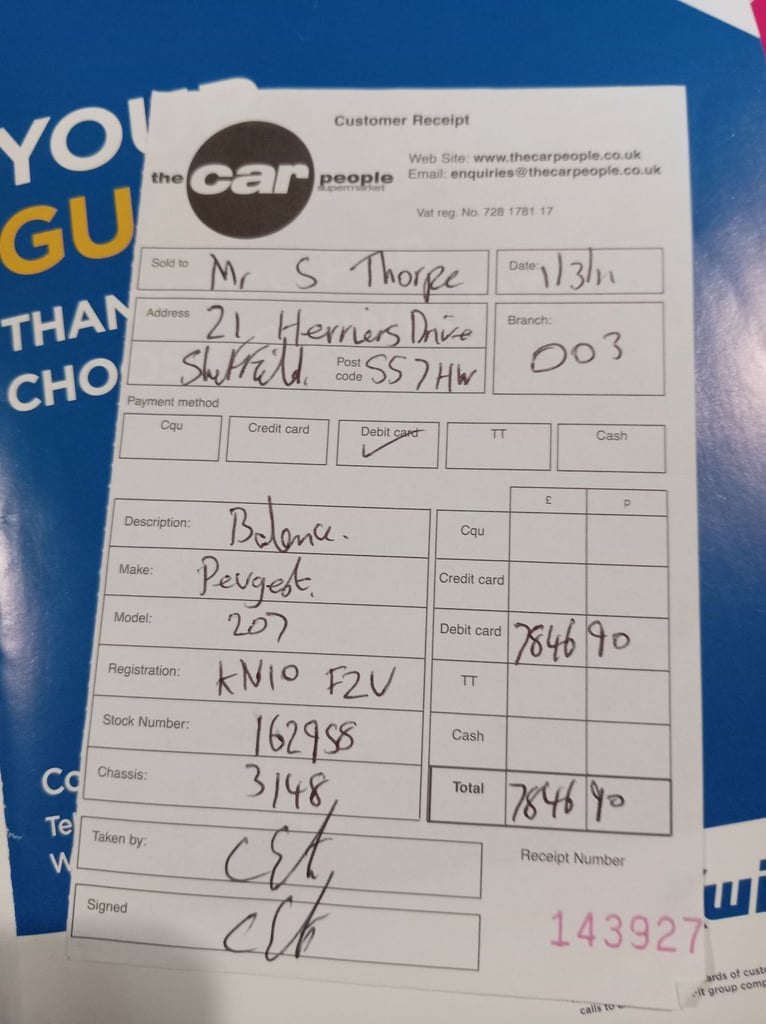 YOU
GU
THAN
CHO
Customer Receipt
the car people
supermarket
Web Site: www.thecarpeople.co.uk
Email: enquiries@thecarpeople.co.uk
Vat reg. No. 728 1781 17
Sold to Mr S Thorpe
Date: 1/3/11
Address 21 Herriers Drive
Sheffield. Post code S57HW
Branch: 003
Payment method
Cqu Credit card Debit card ✓ TT Cash
£ p
Description: Balance.
Make: Peugeot.
Model: 207
Registration: KN10 FZV
Stock Number: 162958
Chassis: 3148
Cqu
Credit card
Debit card 7846 90
TT
Cash
Total 7846 90
Taken by:
Signed
Receipt Number
143927
Co
Te
W
wi
ards of cust
it group comp
calls to